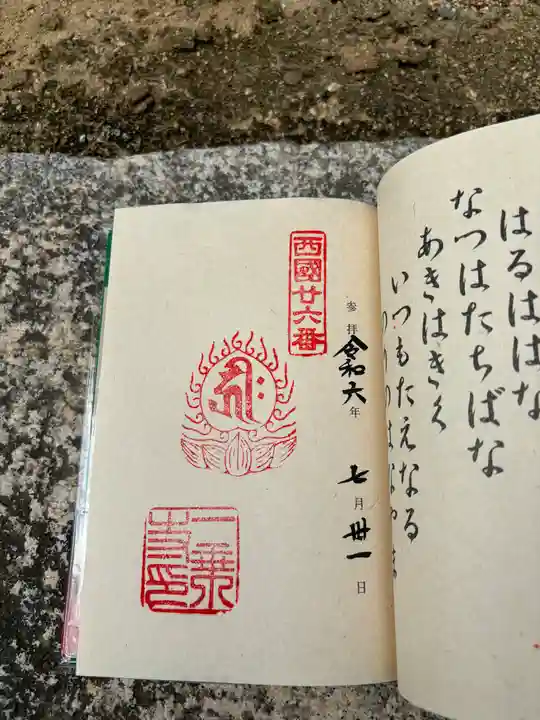 はるははな
なつはたちばな
あきはきく
いつもたえなる
参拝 令和六年 七月卅一日
西國廿六番
一乗寺印